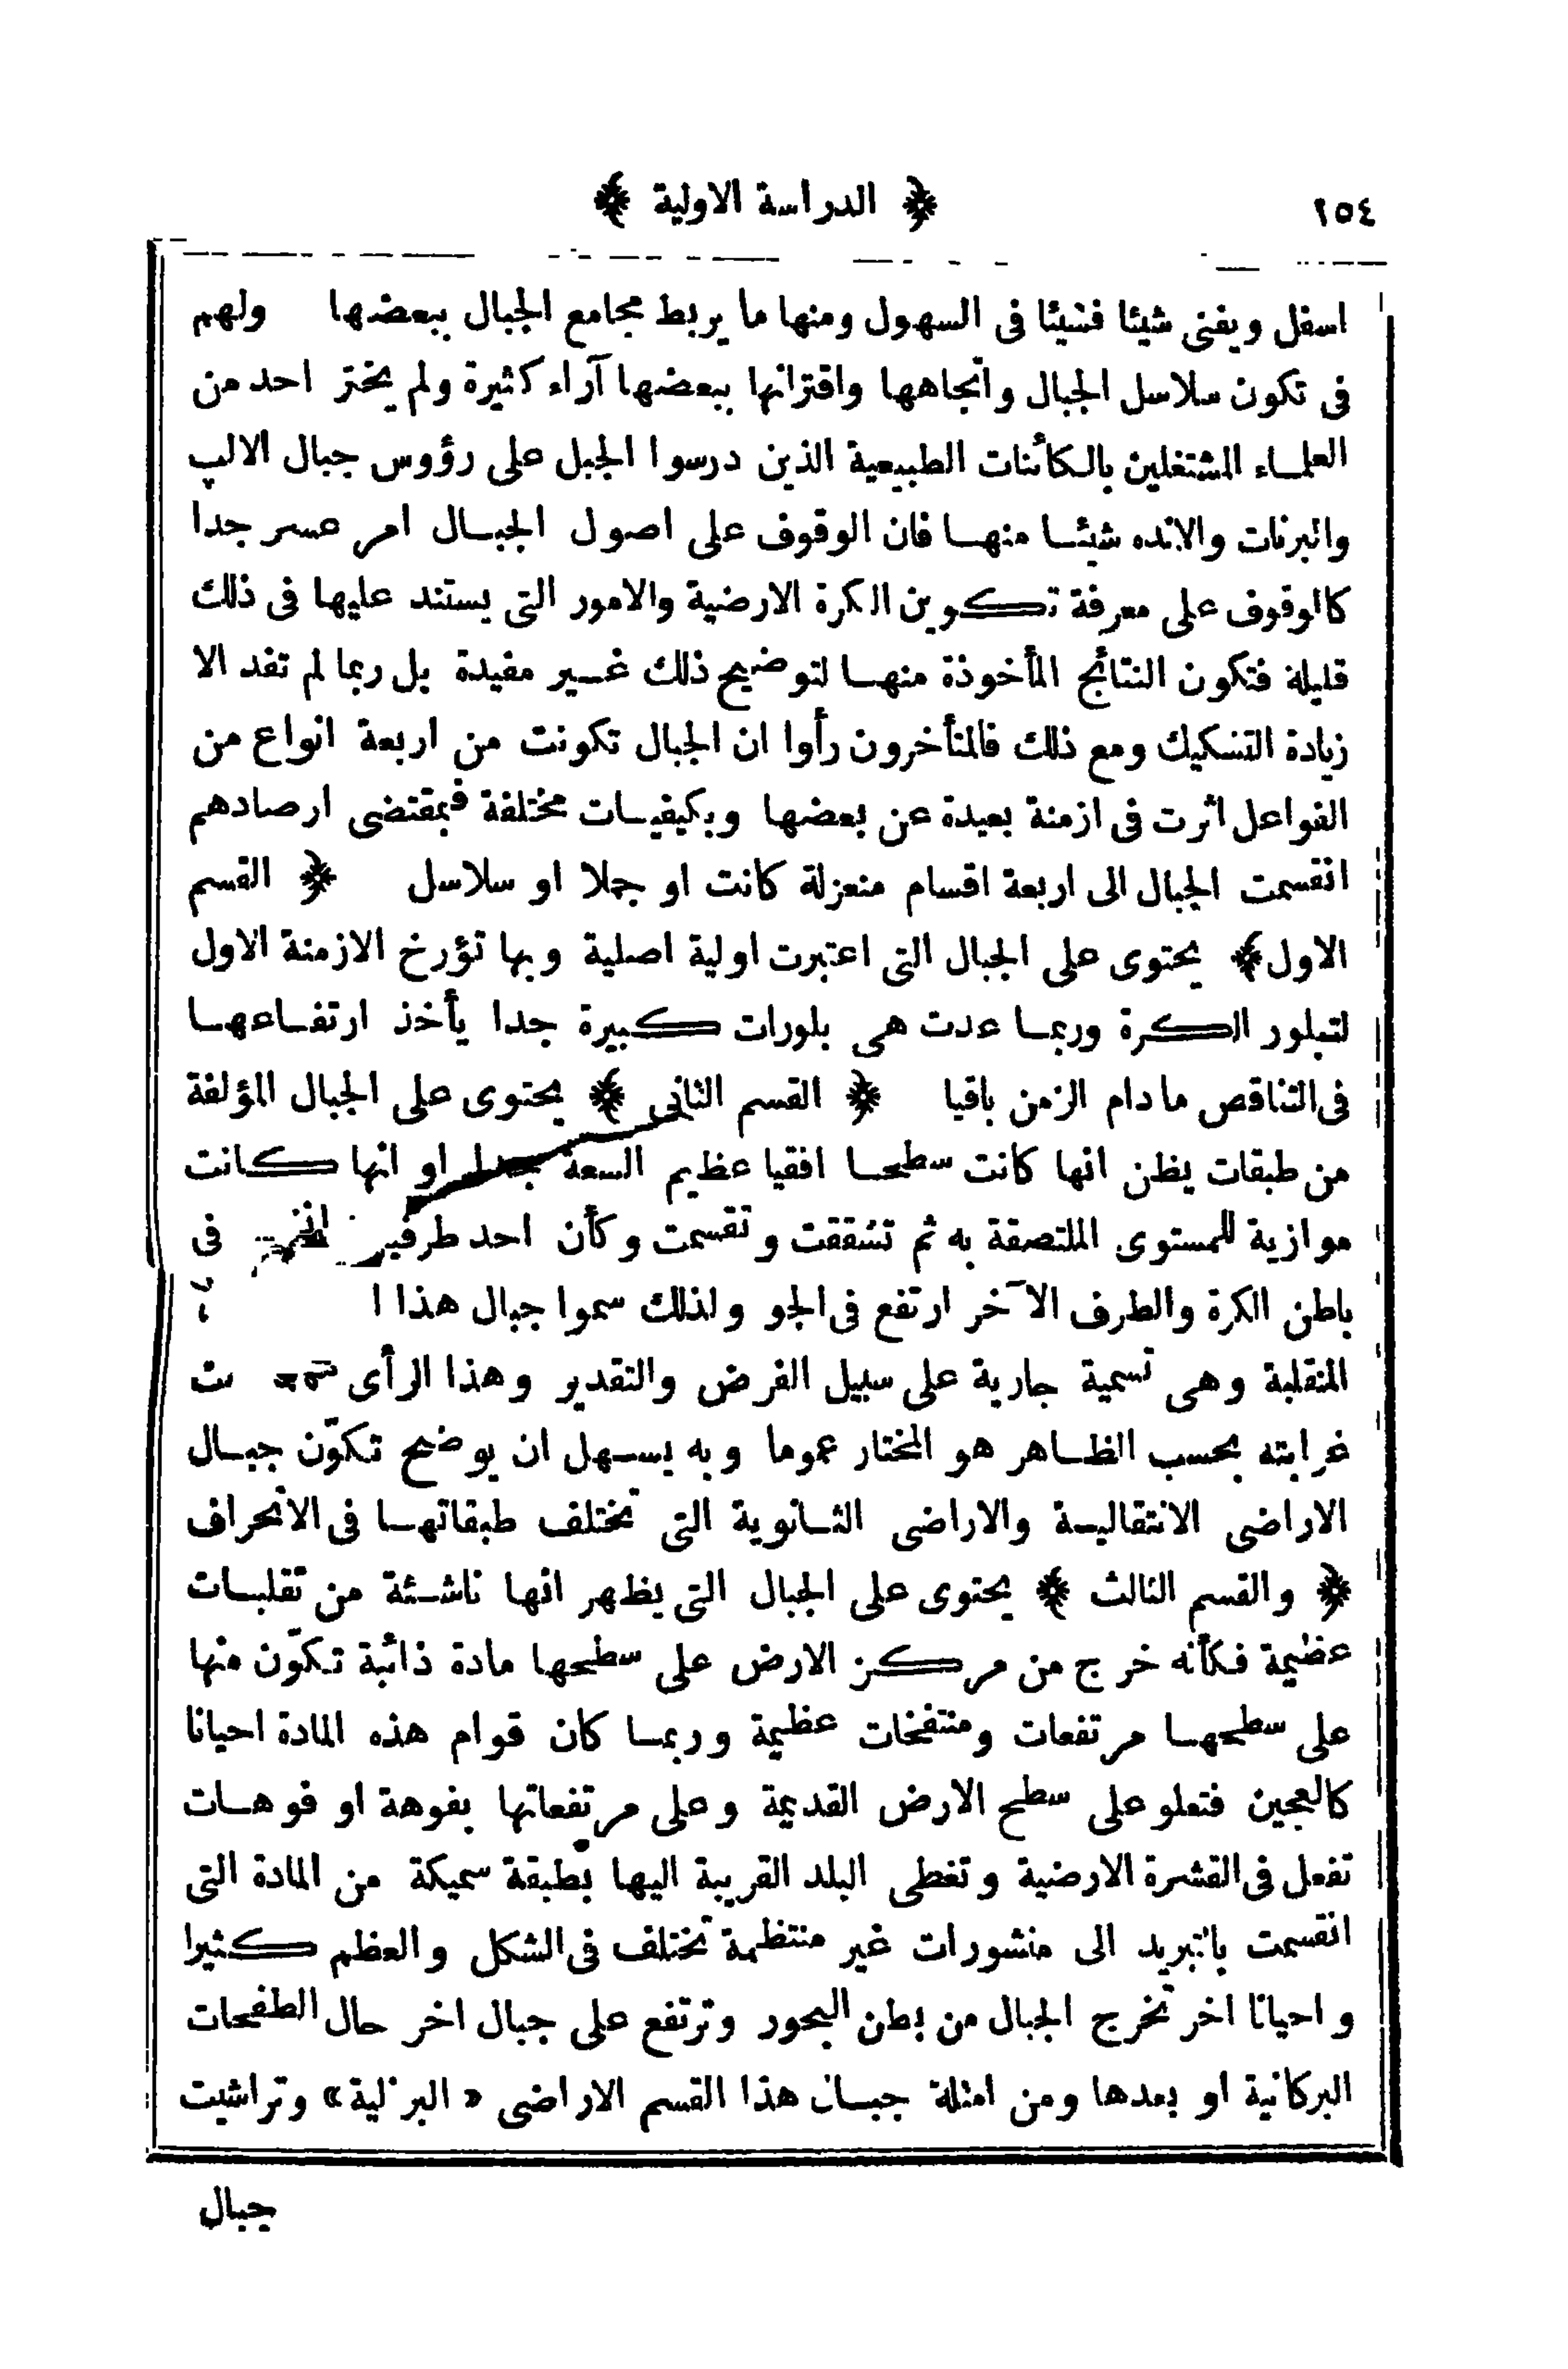 ١٥٤
﴿ الدراسة الاولية ﴾
اسفل ويفنى شيئا فشيئا فى السهول ومنها ما يربط مجامع الجبال ببعضها ولهم
فى تكون سلاسل الجبال واتجاهها واقترانها ببعضها آراء كثيرة ولم يختر احد من
العلماء المشتغلين بالكائنات الطبيعية الذين درسوا الجبل على رؤوس جبال الالپ
والبرنات والانده شيئا منها فان الوقوف على اصول الجبال امر عسر جدا
كالوقوف على معرفة تكوين الكرة الارضية والامور التى يستند عليها فى ذلك
قليلة فتكون النتائج المأخوذة منها لتوضيح ذلك غير مفيدة بل ربما لم تفد الا
زيادة التشكيك ومع ذلك فالمتأخرون رأوا ان الجبال تكونت من اربعة انواع من
الفواعل اثرت فى ازمنة بعيدة عن بعضها وبكيفيات مختلفة فبمقتضى ارصادهم
انقسمت الجبال الى اربعة اقسام منعزلة كانت او جملا او سلاسل ﴿ القسم
الاول﴾ يحتوى على الجبال التى اعتبرت اولية اصلية وبها تؤرخ الازمنة الاول
لتبلور الكرة وربما عدت هى بلورات كبيرة جدا يأخذ ارتفاعها
فى التناقص مادام الزمن باقيا ﴿ القسم الثانى ﴾ يحتوى على الجبال المؤلفة
من طبقات يظن انها كانت سطحا افقيا عظيم السعة جدا او انها كانت
موازية للمستوى الملتصقة به ثم تشققت وتقسمت وكأن احد طرفيها فى
باطن الكرة والطرف الآخر ارتفع فى الجو ولذلك سموا جبال هذا
المنقلبة وهى تسمية جارية على سبيل الفرض والتقدير وهذا الرأى
غرابته بحسب الظاهر هو المختار عموما وبه يسهل ان يوضح تكوّن جبال
الاراضى الانتقالية والاراضى الثانوية التى تختلف طبقاتها فى الانحراف
﴿ والقسم الثالث ﴾ يحتوى على الجبال التى يظهر انها ناشئة من تقلبات
عظيمة فكأنه خرج من مركز الارض على سطحها مادة ذائبة تكوّن منها
على سطحها مرتفعات ومنتفخات عظيمة وربما كان قوام هذه المادة احيانا
كالعجين فتعلو على سطح الارض القديمة وعلى مرتفعاتها بفوهة او فوهات
تفعل فى القشرة الارضية وتغطى البلد القريبة اليها بطبقة سميكة من المادة التى
انقسمت بالتبريد الى منشورات غير منتظمة تختلف فى الشكل والعظم كثيرا
واحيانا اخر تخرج الجبال من بطن البحور وترتفع على جبال اخر حال الطفحات
البركانية او بعدها ومن امثلة جبال هذا القسم الاراضى « البزلية » وتراشيت
جبال